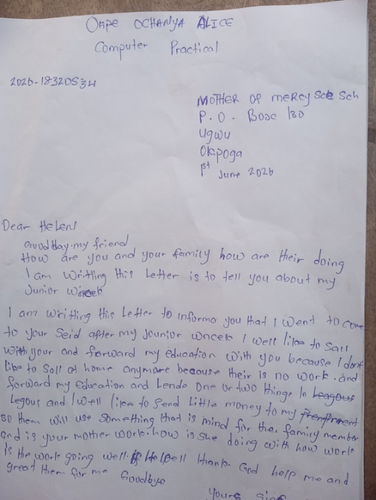 OAPE OCHANYA ALICE
Computer Practical
2026-18320534
MOTHER OF MERCY Sch
P. O. Boox 120
Ugwu
Okpoga
1st June 2026
Dear Helen,
Good day my friend
How are you and your family how are their doing
I am writting this letter is to tell you about my
Junior
I am writting this letter to informo you that I went to come
to your Seid after my Jounior wncek I well like to Sall
with your and forward my education with you because I dont
like to Soll at home anymore because their is no work. and
forward my Education and Lende one or two things in
Legous and I well like to Send Little money to my
So them will use Something that is mind for the family member
and is your mother work how is she doing with how work
is the work going well. thanks God help me and
great them for me Goodbye
Yours